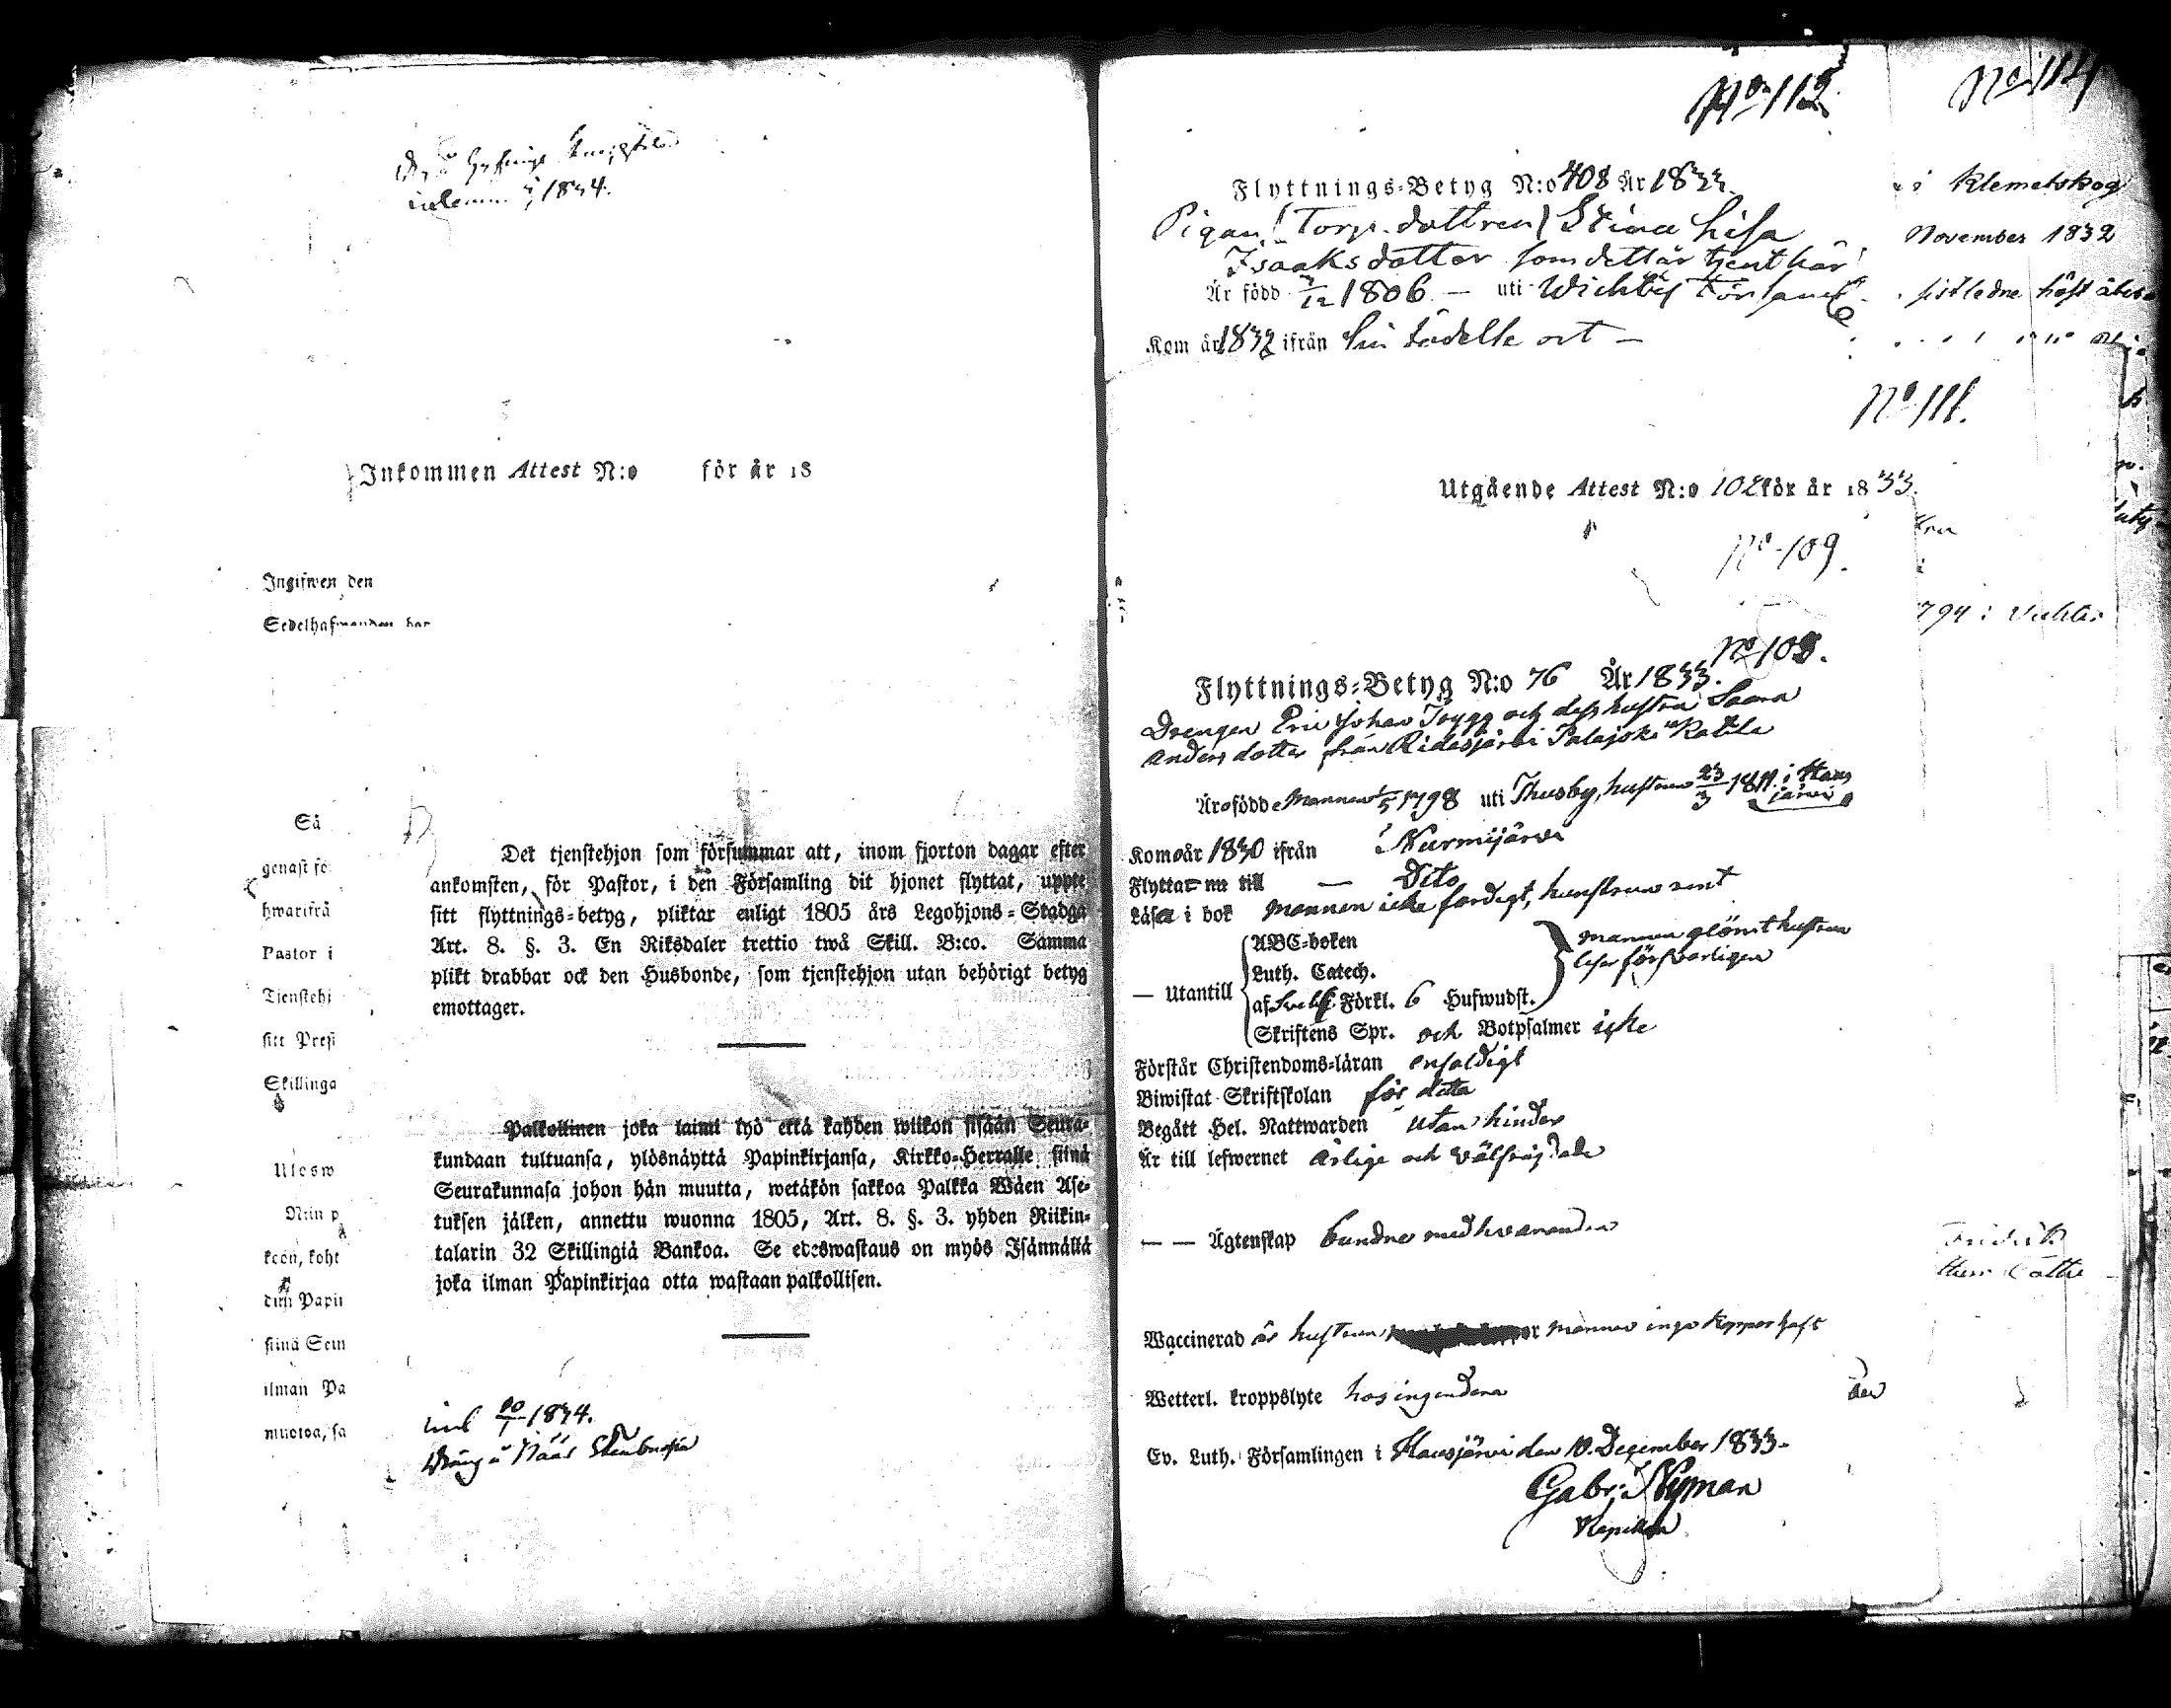 inkomm 1834.
Inkommen Attest N:o för år 18
Ingifwen den
Sedelhafwanden har
Så
genast fö
hwarifrå
Pastor i
Tjenstehj
sitt Presi
Skillinga
Ulosw
N:in p
keen, koht
dim Papir
siinä Seur
ilman Pa
muotoa, sa
Det tjenstehjon som försummar att, inom fjorton dagar efter
ankomsten, för Pastor, i den Församling dit hjonet flyttat, uppte
sitt flyttnings-betyg, pliktar enligt 1805 års Legohjons-Stadga
Art. 8. §. 3. En Riksdaler trettio två Skill. B:co. Samma
plikt drabbar ock den Husbonde, som tjenstehjon utan behörigt betyg
emottager.
Palkollinen joka laimi lyö että kahden wiikon sisään Seura-
kundaan tultuansa, ylösnäyttä Papinkirjansa, Kirkko-Herralle siinä
Seurakunnasa johon hän muutta, wetäkön sakkoa Palkka Wäen Ase-
tuksen jälken, annettu wuonna 1805, Art. 8. §. 3. yhden Riikin-
talarin 32 Skillingiä Bankoa. Se edeswastaus on myös Isännällä
joka ilman Papinkirjaa otta wastaan palkollisen.
1834.
No 112
Flyttnings-Betyg N:o 408 År 1833.
Pigan (Torp. dottren) Stina Lisa
Isaaksdotter som dettår tjent här
Är född 1806 — uti Wichtis Församl
Kom år 1832 ifrån sin födelse ort —
No 111.
Utgående Attest N:o 102 för år 1833.
No 109.
No 108.
Flyttnings-Betyg N:o 76 År 1833.
Drengen Eric Johan Trygg och dess hustru Saara
Anders dotter från Ridasjärvi Palajoki Katila
Äro födde Mannen 1798 uti Thusby, hustrun 23/3 1811 i Haus
järvi
Komo år 1830 ifrån Nurmijärvi
Flytta nu till — Dito
Läsa i bok Mannen icke färdigt, hustrun rent
— Utantill
ABC-boken
Luth. Catech.
af Sveb. Förkl. 6 Hufwudst.
Skriftens Spr. och Botpsalmer icke
Mannen glömt hustrun
läser försvarligen
Förstår Christendoms-läran enfaldigt
Biwistat Skriftskolan för detta
Begått Hel. Nattwarden utan hinder
Är till lefwernet ärlige och välfräjdade
— — Ägtenskap bundne med hvarandra
Waccinerad är hustrun, mannen inga koppor haft
Wetterl. kroppslyte hos ingendera
Ev. Luth. Församlingen i Hausjärvi den 10. December 1833.
Gabr. Nyman
Kapellan
No 114
i Klemetskog
November 1832
sistledne höst
794 i Vichtis